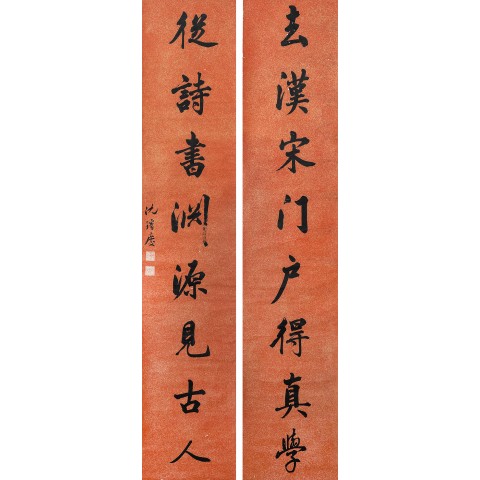 去漢宋门户得真學
從詩書渊源見古人
沈